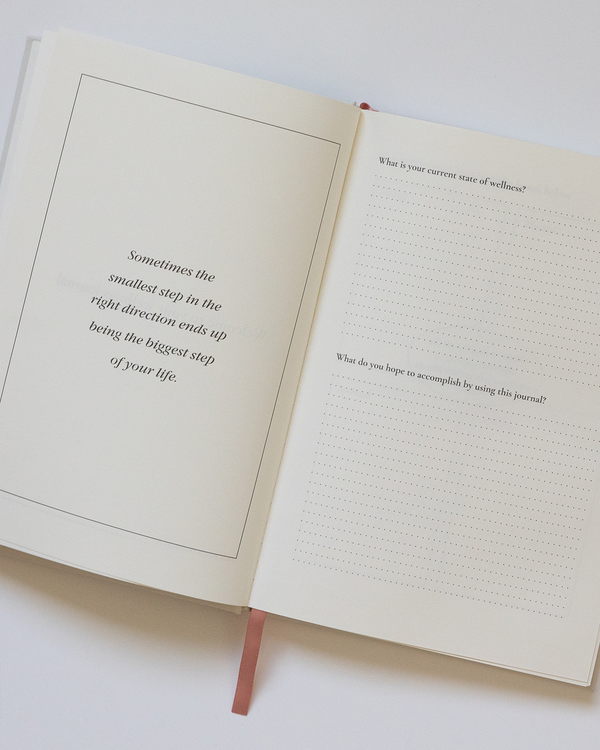 Sometimes the
smallest step in the
right direction ends up
being the biggest step
of your life.
What is your current state of wellness?
What do you hope to accomplish by using this journal?